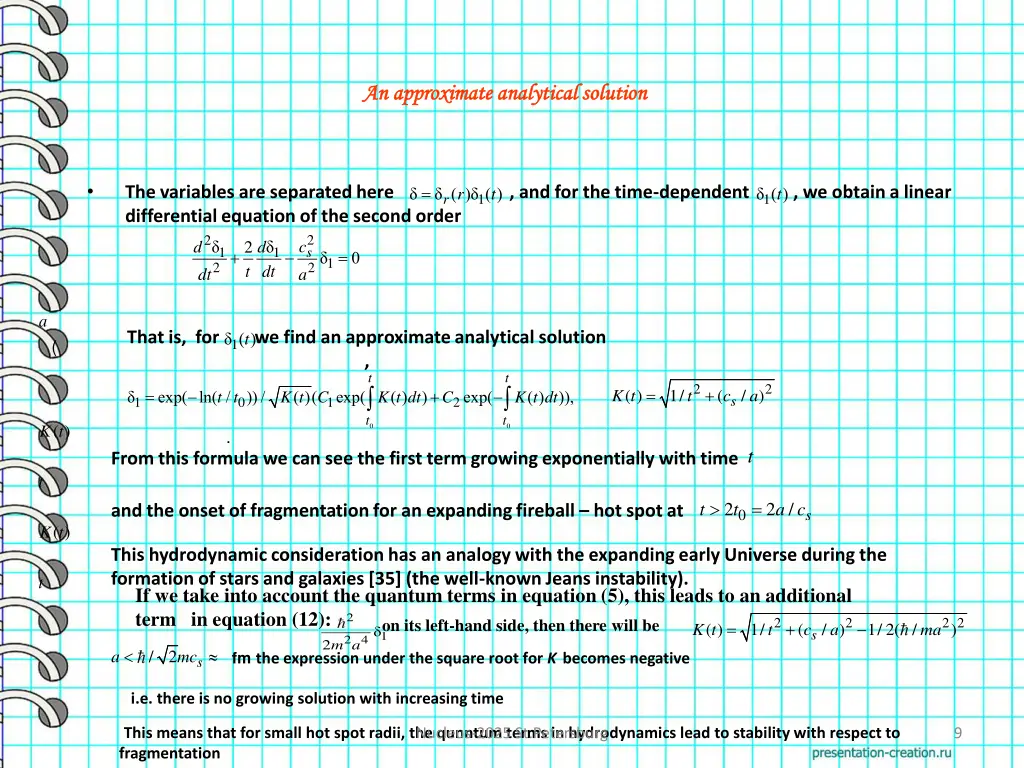 An approximate analytical solution
• The variables are separated here δ = δ_r(r)δ₁(t) , and for the time-dependent δ₁(t) , we obtain a linear
differential equation of the second order
d²δ₁/dt² + (2/t) dδ₁/dt − (c_s²/a²) δ₁ = 0
a
(
That is, for δ₁(t) we find an approximate analytical solution
,
δ₁ = exp(− ln(t / t₀)) / √K(t) (C₁ exp(∫_{t₀}^{t} K(t)dt) + C₂ exp(−∫_{t₀}^{t} K(t)dt)), K(t) = √(1/ t² + (c_s / a)²)
K(t)
.
From this formula we can see the first term growing exponentially with time t
and the onset of fragmentation for an expanding fireball – hot spot at t > 2t₀ = 2a / c_s
K(t)
This hydrodynamic consideration has an analogy with the expanding early Universe during the
formation of stars and galaxies [35] (the well-known Jeans instability).
If we take into account the quantum terms in equation (5), this leads to an additional
term in equation (12): ħ²/(2m²a⁴) δ₁ on its left-hand side, then there will be K(t) = √(1/ t² + (c_s / a)² − 1/ 2(ħ / ma²)²)
a < ħ / √2mc_s ≈ fm the expression under the square root for K becomes negative
i.e. there is no growing solution with increasing time
This means that for small hot spot radii, the quantum terms in hydrodynamics lead to stability with respect to
fragmentation
9
presentation-creation.ru